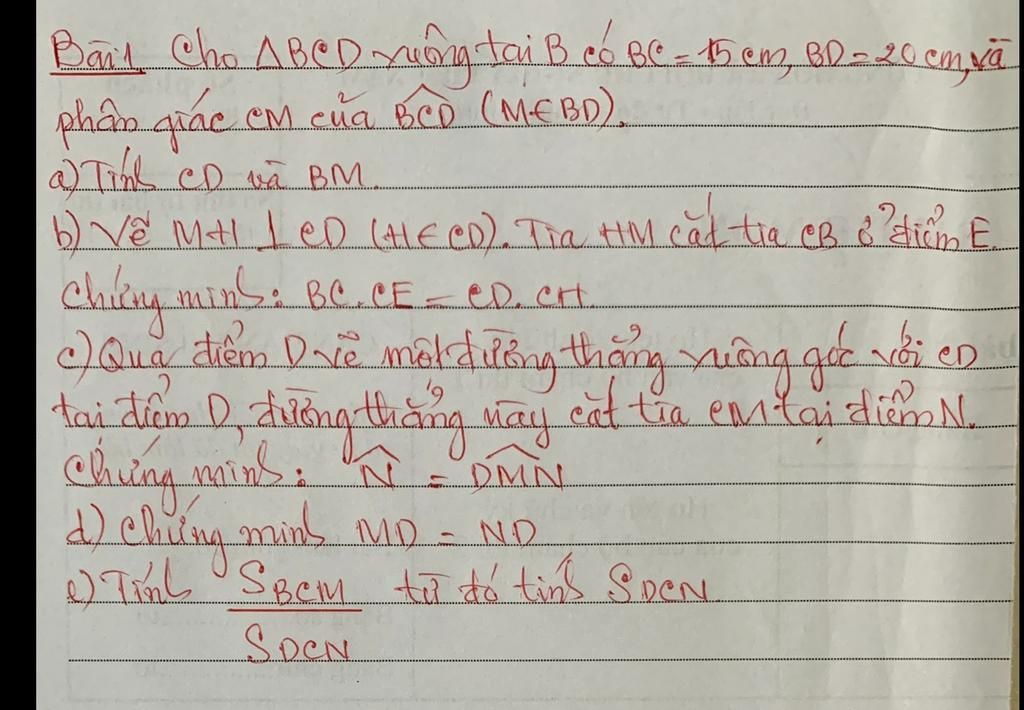 Bài 1 Cho ΔBCD vuông tại B có BC = 15 cm, BD = 20 cm, vẽ
phân giác CM của \widehat{BCD} (M ∈ BD).
a) Tính CD và BM.
b) Vẽ MH ⊥ CD (H ∈ CD). Tia HM cắt tia CB ở điểm E.
Chứng minh: BC.CE = CD.CH.
c) Qua điểm D vẽ một đường thẳng vuông góc với CD
tại điểm D, đường thẳng này cắt tia CM tại điểm N.
Chứng minh: \widehat{N} = \widehat{DMN}
d) Chứng minh MD = ND
e) Tính \frac{S_{BCM}}{S_{DCN}} từ đó tính S_{DCN}